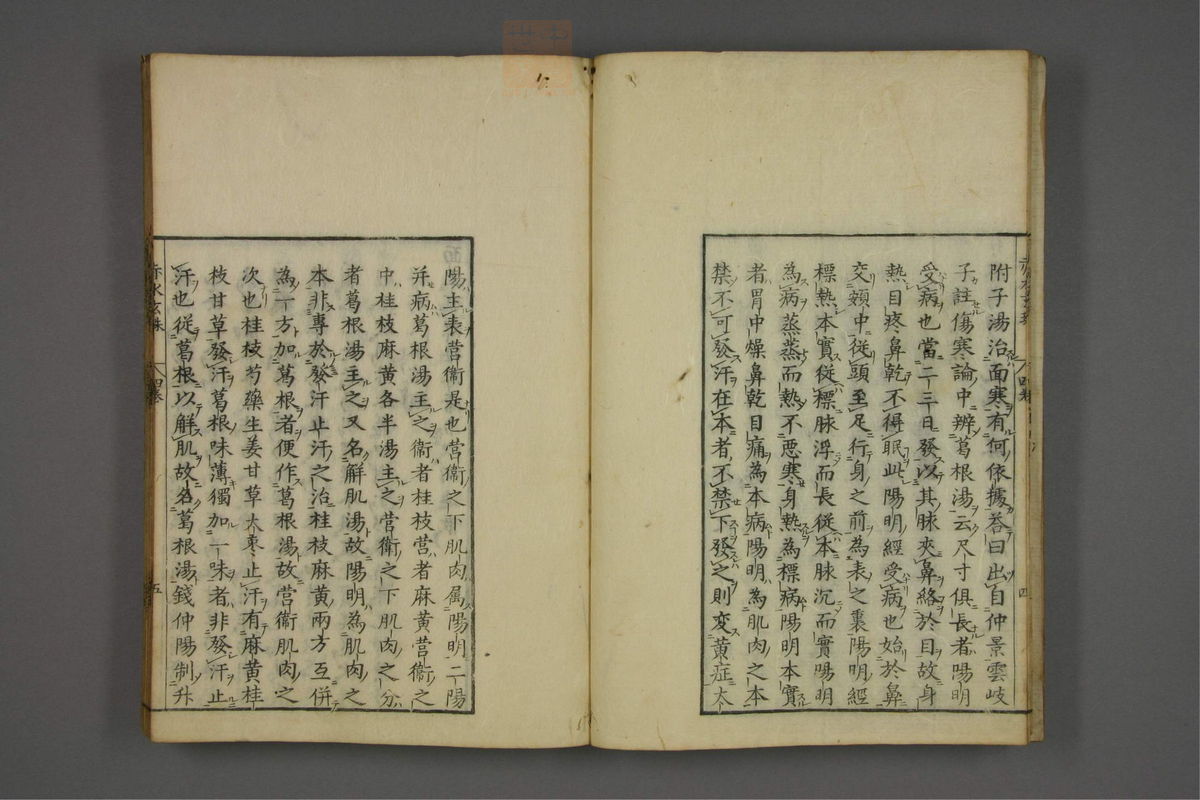 附子湯治面寒有何依據荅曰出自仲景雲岐
子註傷寒論中辨葛根湯云尺寸俱長者陽明
受病也當二三日發以其脉夾鼻絡於目故身
熱目疼鼻乾不得眠此陽明經受病也始於鼻
交頞中従頭至足行身之前為表之裏陽明經
標熱本實従標脉浮而長従本脉沉而實陽明
為病蒸蒸而熱不惡寒身熱為標病陽明本實
者胃中燥鼻乾目痛為本病陽明為肌肉之本
禁不可發汗在本者不禁下發之則変黄症太
陽主表営衞是也営衞之下肌肉属陽明二陽
并病葛根湯主之衞者桂枝営者麻黄営衞之
中桂枝麻黄各半湯主之営衛之下肌肉之分
者葛根湯主之又名解肌湯故陽明為肌肉之
本非専於發汗止汗之治桂枝麻黄兩方互併
為一方加葛根者便作葛根湯故営衞肌肉之
次也桂枝芍藥生姜甘草大棗止汗有麻黄桂
枝甘草發汗葛根味薄獨加一味者非發汗止
汗也従葛根以解肌故名葛根湯錢仲陽制升
赤水玄珠
四巻
五
四